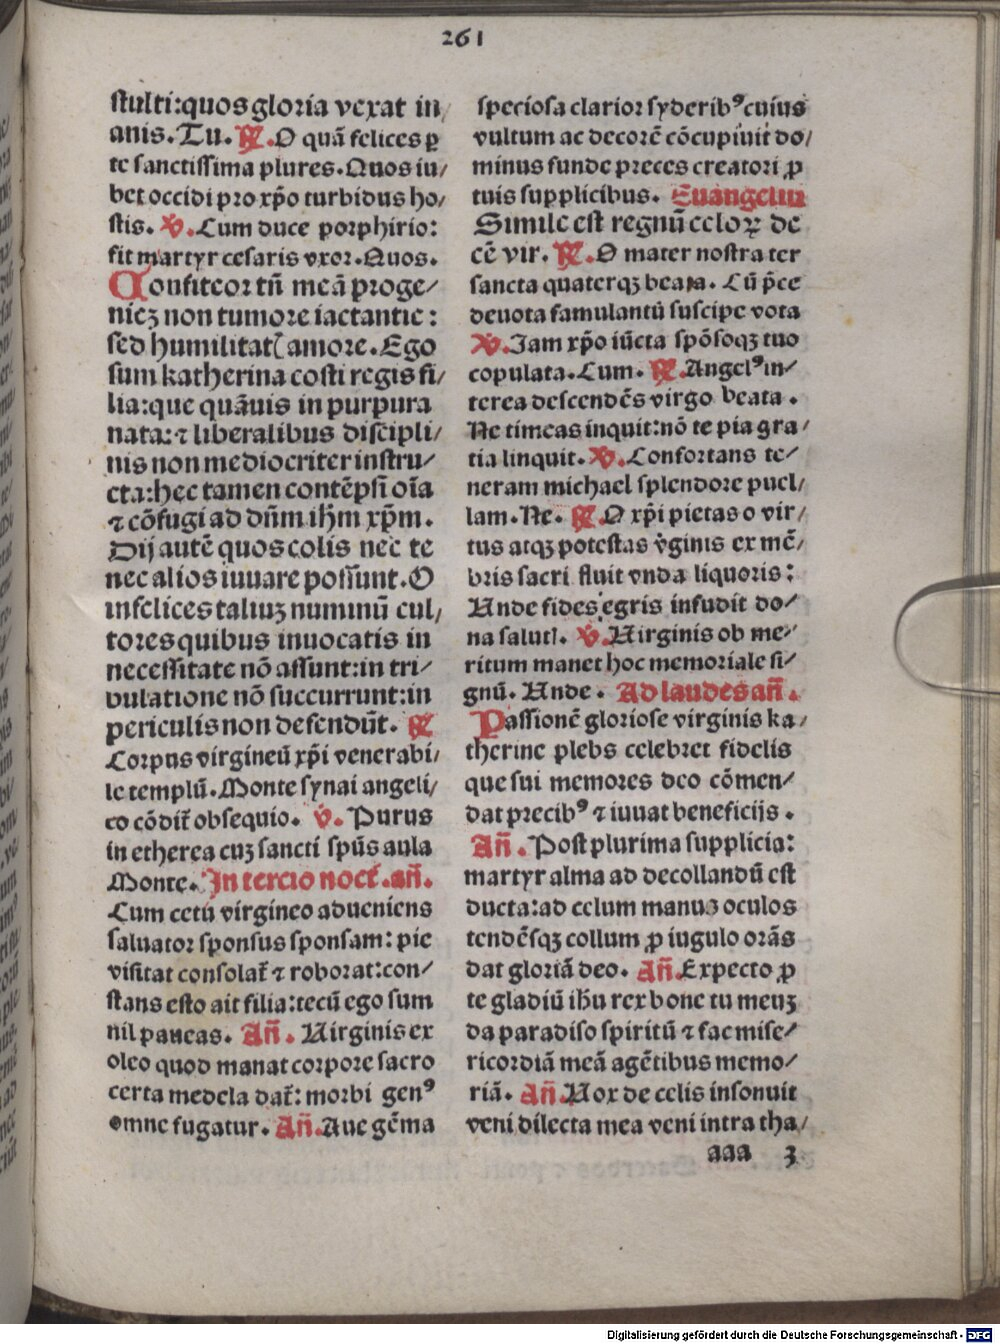 261
stulti:quos gloria vexat in/
anis.Tu. ℟.O quā felices ꝑ
te sanctissima plures.Quos iu/
bet occidi pro xp̄o turbidus ho/
stis. ℣.Cum duce porphirio:
fit martyr cesaris vxor.Quos.
Confiteor tn̄ meā proge/
niez non tumore iactantie :
sed humilitatꝭ amore.Ego
sum katherina costi regis fi/
lia:que quāuis in purpura
nata:⁊ liberalibus discipli/
nis non mediocriter instru/
cta:hec tamen contēpsi oīa
⁊ cōfugi ad dn̄m ihm̄ xp̄m.
Dij autē quos colis nec te
nec alios iuuare possunt.O
infelices taliuz numinū cul/
tores quibus inuocatis in
necessitate nō assunt:in tri/
bulatione nō succurrunt:in
periculis non defendūt. ℟
Corpus virgineū xp̄i venerabi/
le templū.Monte synai angeli/
co cōdit̄ obsequio. ℣. Purus
in etherea cuz sancti spūs aula
Monte. In tercio noct̄.añ.
Cum cetu virgineo adueniens
saluator sponsus sponsam: pie
visitat consolat̄ ⁊ roborat:con/
stans esto ait filia:tecū ego sum
nil paueas. Añ. Uirginis ex
oleo quod manat corpore sacro
certa medela dat̄: morbi genꝰ
omne fugatur. Añ.Aue gēma
speciosa clarior syderibꝰ cuius
vultum ac decorē cōcupiuit do/
minus funde preces creatori ꝓ
tuis supplicibus. Euangeliū
Simile est regnū celoꝝ de
cē vir. ℟.O mater nostra ter
sancta quaterqꝫ beata. Cū p̄ce
deuota famulantū suscipe vota
℣.Jam xp̄o iūcta spōsoqꝫ tuo
copulata.Cum. ℟.Angelꝰ in/
terea descendēs virgo beata .
Ne timeas inquit:nō te pia gra/
tia linquit. ℣.Confortans te/
neram michael splendore puel/
lam.Ne. ℟.O xp̄i pietas o vir/
tus atqꝫ potestas v̓ginis ex mē/
bris sacri fluit vnda liquoris:
Unde fides egris infudit do/
na salutꝭ. ℣.Uirginis ob me/
ritum manet hoc memoriale si/
gnū. Unde . Ad laudes añ.
Passionē gloriose virginis ka/
therine plebs celebret fidelis
que sui memores deo cōmen/
dat precibꝰ ⁊ iuuat beneficijs .
Añ. Post plurima supplicia:
martyr alma ad decollandū est
ducta:ad celum manuz oculos
tendēsqꝫ collum ꝓ iugulo orās
dat gloriā deo. Añ.Expecto ꝓ
te gladiū ih̄u rex bone tu meuz
da paradiso spiritū ⁊ fac mise/
ricordiā meā agētibus memo/
riā. Añ.Uox de celis insonuit
veni dilecta mea veni intra tha/
aaa 3
Digitalisierung gefördert durch die Deutsche Forschungsgemeinschaft - DFG